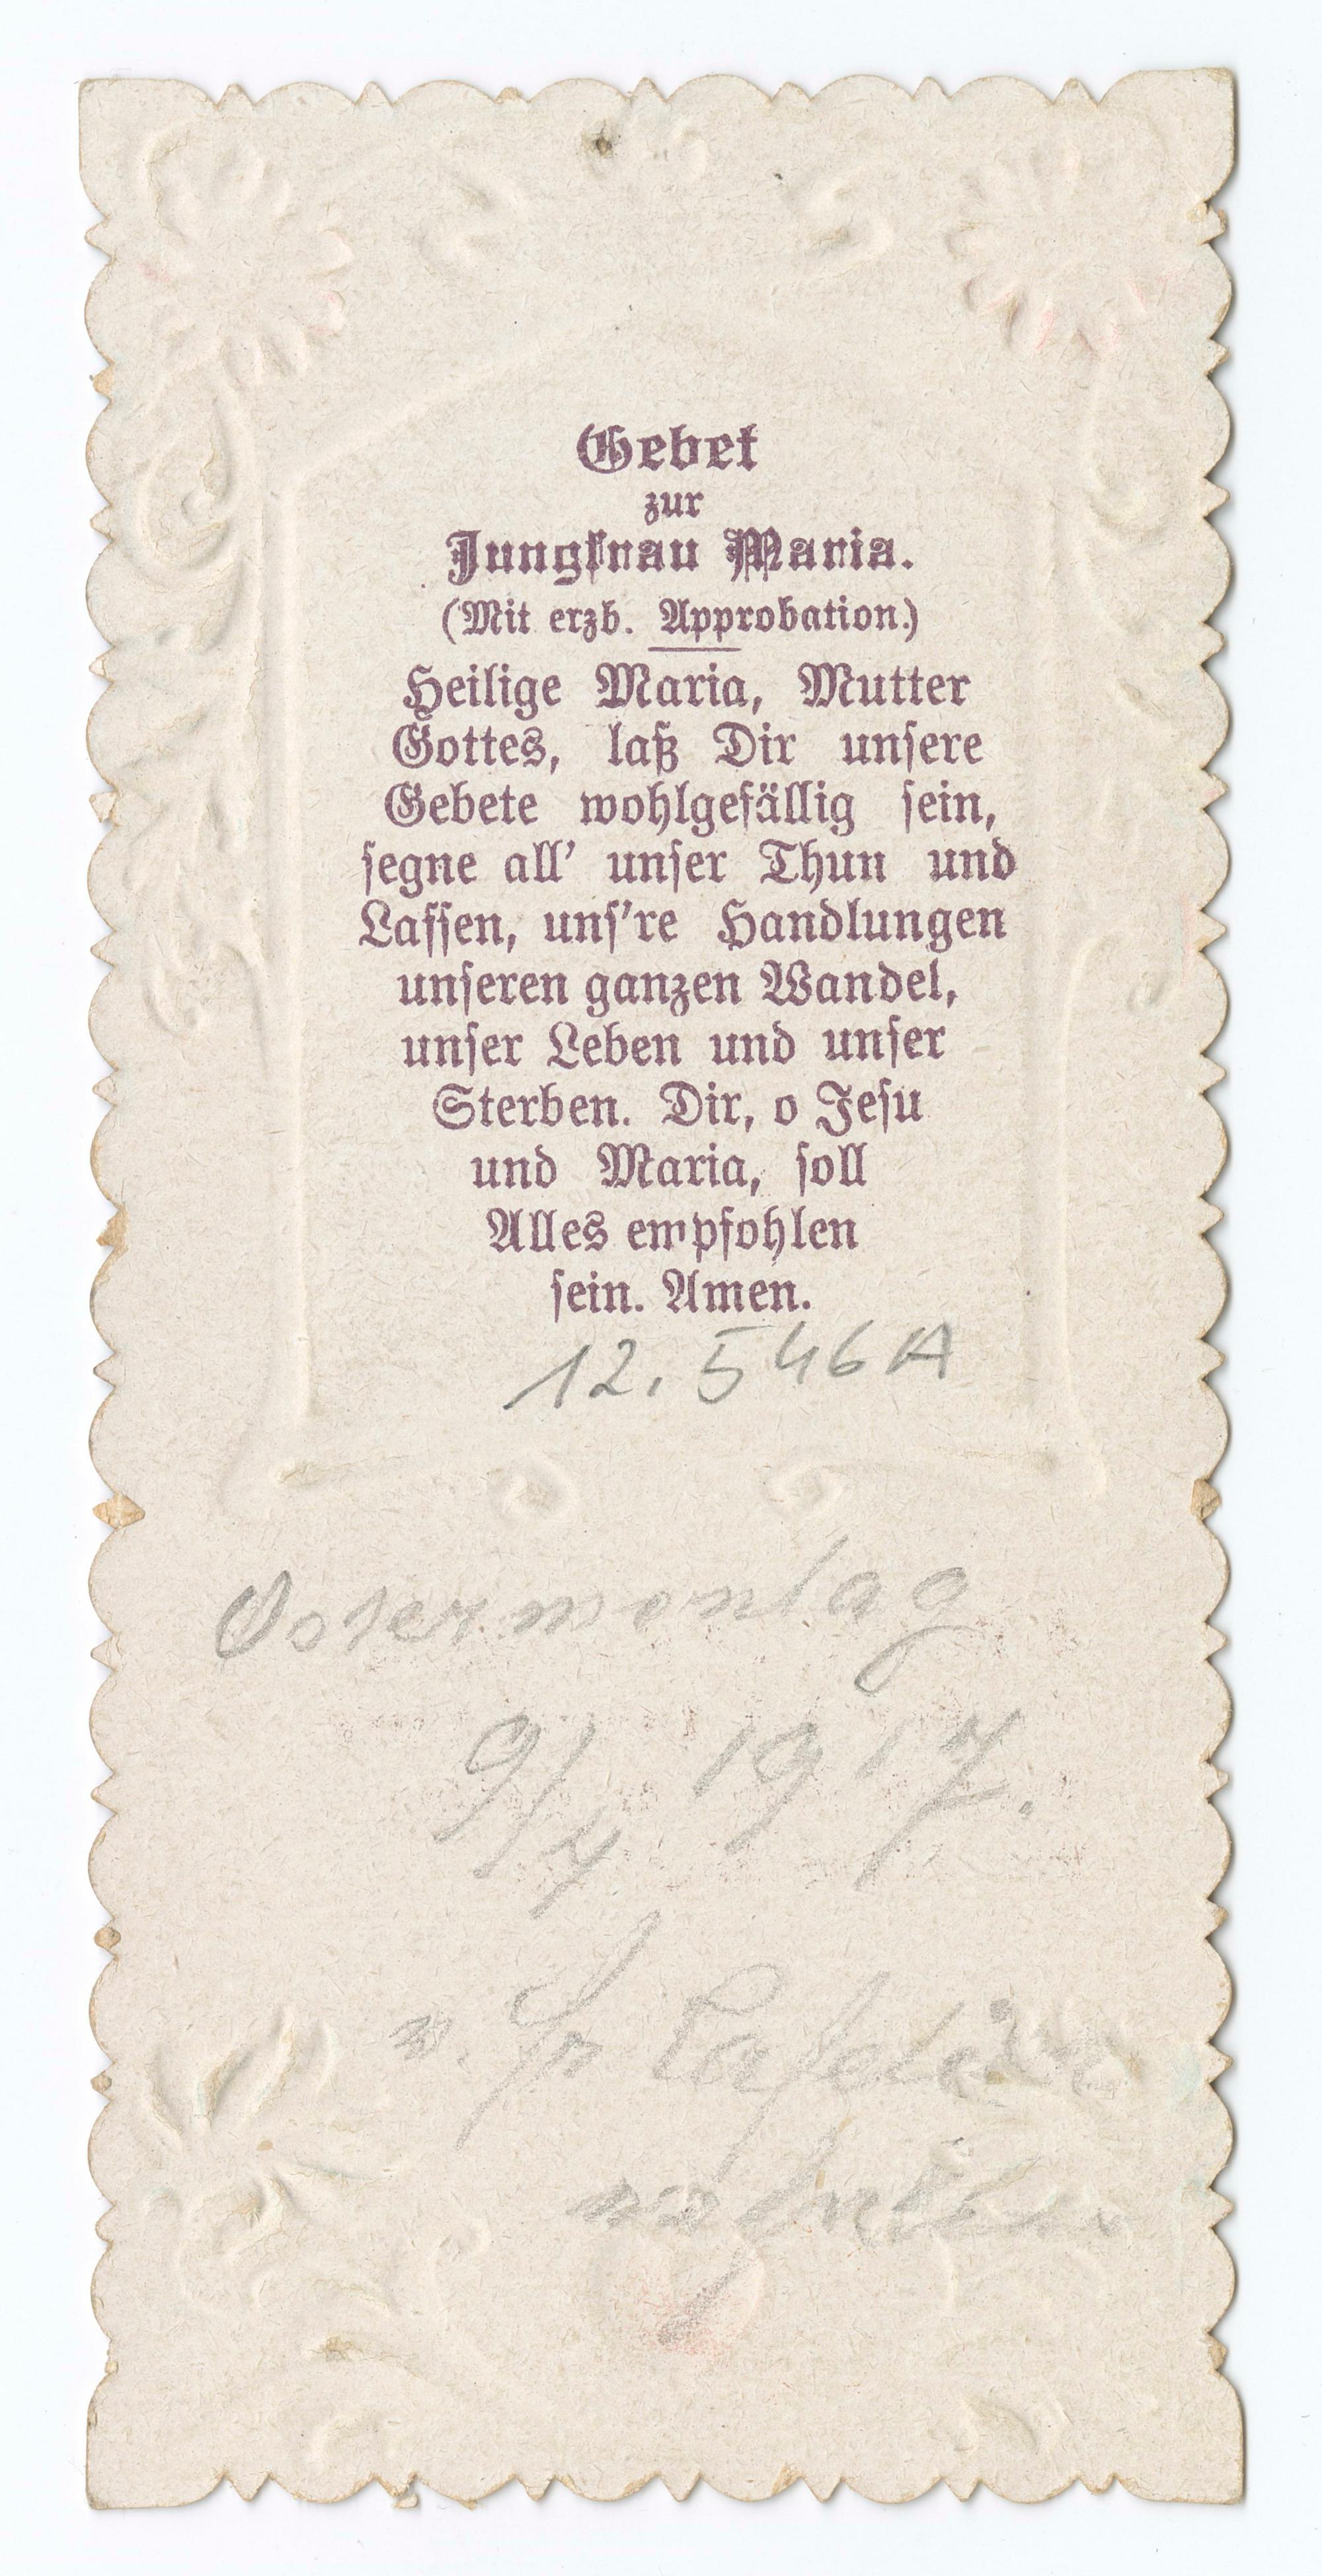 Gebet
zur
Jungfrau Maria.
(Mit erzb. Approbation.)
Heilige Maria, Mutter
Gottes, laß Dir unsere
Gebete wohlgefällig sein,
segne all' unser Thun und
Lassen, uns're Handlungen
unseren ganzen Wandel,
unser Leben und unser
Sterben. Dir, o Jesu
und Maria, soll
Alles empfohlen
sein. Amen.
12.546A
Ostermontag
9/4 1917.
v. Fr